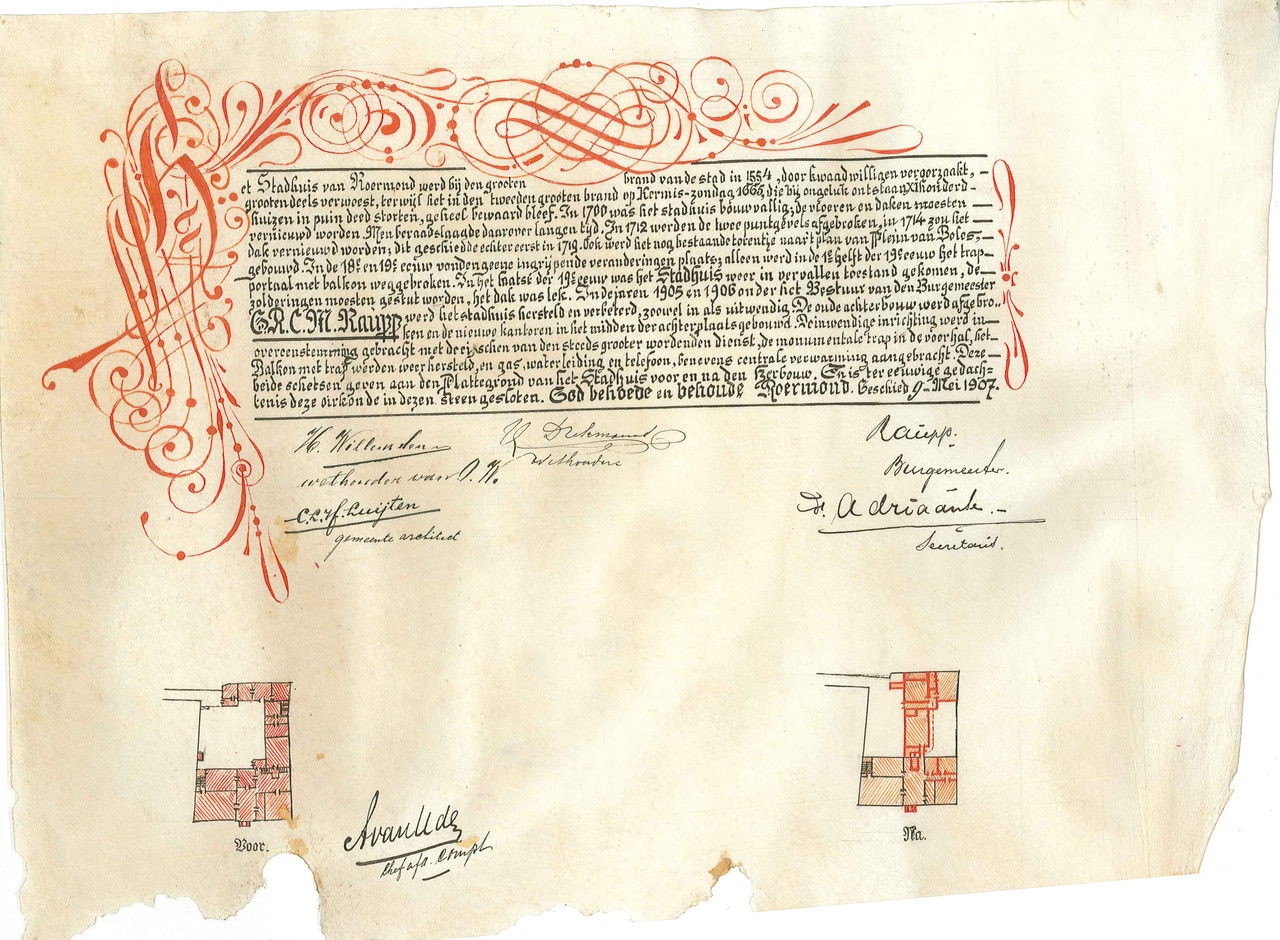 Het Stadhuis van Roermond werd bij den grooten brand van de stad in 1554, door kwaadwilligen veroorzaakt,
grootendeels verwoest, terwijl het in den tweeden grooten brand op Kermis-zondag 1665, die bij ongeluk ontstaan XI honderd-
huizen in puin deed storten, geheel bewaard bleef. In 1700 was het stadhuis bouwvallig; de vloeren en daken moesten
vernieuwd worden. Men beraadslaagde daarover langen tijd. In 1712 werden de twee puntgevels afgebroken, in 1714 zou het
dak vernieuwd worden; dit geschiedde echter eerst in 1719. Ook werd het nog bestaande torentje naar't plan van
gebouwd. In de 18e en 19e eeuw vonden geene ingrijpende veranderingen plaats; alleen werd in de 1e helft der 19e eeuw het trap-
portaal met balkon weggebroken. In het laatst der 19e eeuw was het Stadhuis weer in vervallen toestand gekomen, de
zolderingen moesten gestut worden, het dak was lek. In de jaren 1905 en 1906 onder het Bestuur van den Burgemeester
G.R.C.M. Raupp werd het stadhuis hersteld en verbeterd, zoowel in als uitwendig. De oude achterbouw werd afgebro-
ken en de nieuwe kantoren in het midden der achterplaats gebouwd. De inwendige inrichting werd in
overeenstemming gebracht met de eischen van den steeds grooter wordenden dienst, de monumentale trap in de voorhal, het
Balkon met trap werden weer hersteld, en gas, waterleiding en telefoon, benevens centrale verwarming aangebracht. Deze
beide schetsen geven aan den Plattegrond van het Stadhuis voor en na den Verbouw. En is ter eeuwige gedach-
tenis deze oirkonde in dezen steen gesloten. God behoede en behoude Roermond. Geschied 9 Mei 1907.
Raupp.
Burgemeester.
wethouder van
Wethouder
C.L.H. Luijten
gemeente architect
Secretaris.
Voor.
Na.